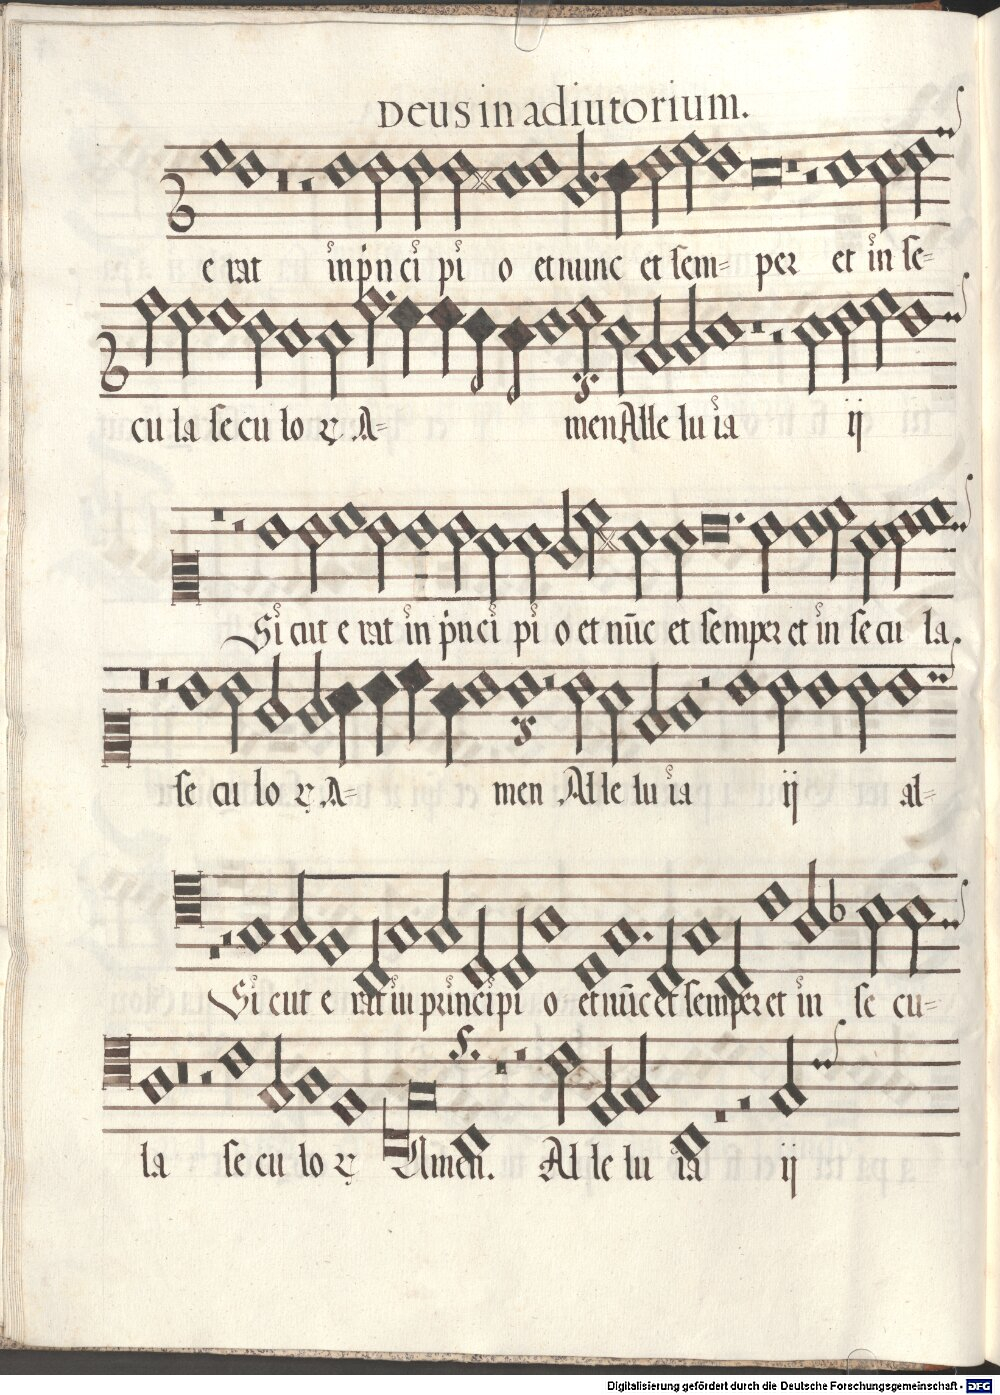 Deus in adiutorium.
e rat in pn ci pi o et nunc et sem= per et in se=
cu la se cu lo ꝝ. A= men Alle lu ia ij
Si cut e rat in pn ci pi o et nūc et semper et in se cu la.
se cu lo ꝝ. A= men Alle lu ia ij al=
Si cut e rat in principi o et nūc et semper et in se cu=
la se cu lo ꝝ Amen. Alle lu ia ij
Digitalisierung gefördert durch die Deutsche Forschungsgemeinschaft - DFG